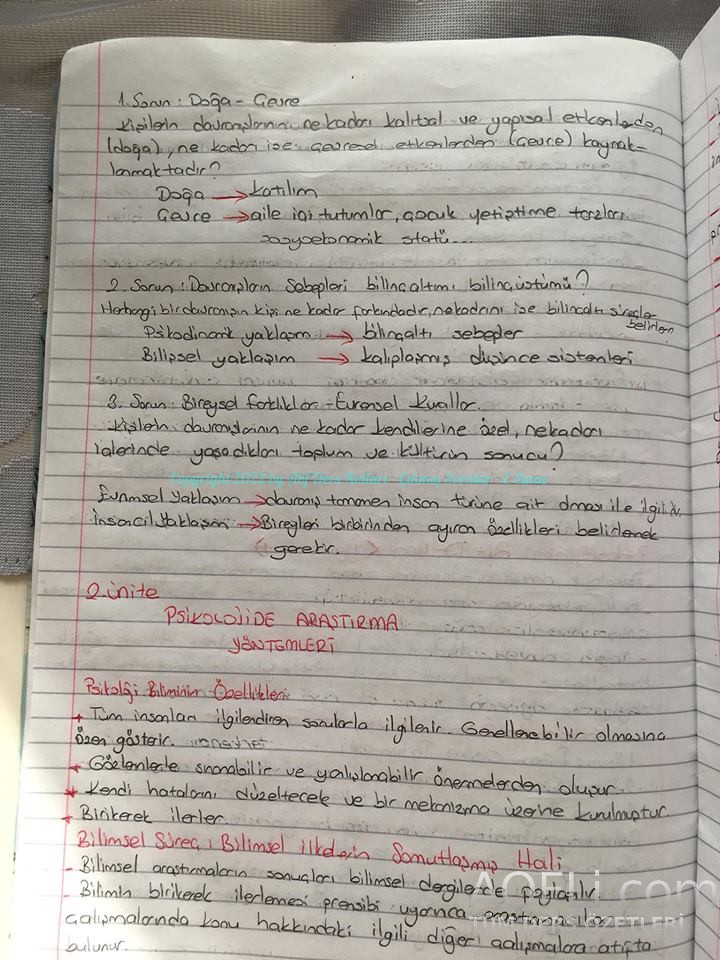 1. Sorun : Doğa - Çevre
Kişilerin davranışlarının ne kadarı kalıtsal ve yapısal etkenlerden
(doğa), ne kadarı ise çevresel etkenlerden (çevre) kaynak-
lanmaktadır?
Doğa → katılım
Çevre → aile içi tutumlar, çocuk yetiştirme tarzları
sosyoekonomik statü...
2. Sorun : Davranışların Sebepleri bilinçaltımı bilinçüstümü?
Herhangi bir davranışın kişi ne kadar farkındadır, ne kadarını ise bilinçaltı süreçler
belirler
Psikodinamik yaklaşım → bilinçaltı sebepler
Bilişsel yaklaşım → kalıplaşmış düşünce sistemleri
3. Sorun : Bireysel farklılıklar - Evrensel Kurallar.
Kişilerin davranışlarının ne kadar kendilerine özel, ne kadarı
içlerinde yaşadıkları toplum ve kültürün sonucu?
Evrimsel Yaklaşım → davranış tamamen insan türüne ait olması ile ilgilidir.
İnsancıl Yaklaşım → Bireyleri birbirinden ayıran özellikleri belirlemek
gerekir.
2. ünite
PSİKOLOJİDE ARAŞTIRMA
YÖNTEMLERİ
Psikoloji Biliminin Özellikleri
+ Tüm insanları ilgilendiren sorularla ilgilenir. Genellenebilir olmasına
özen gösterir.
+ Gözlemlerle sınanabilir ve yanlışlanabilir önermelerden oluşur.
+ Kendi hatalarını düzeltecek ve bir mekanizma üzerine kurulmuştur.
+ Birikerek ilerler.
Bilimsel Süreç : Bilimsel ilkelerin Somutlaşmış Hali
- Bilimsel araştırmaların sonuçları bilimsel dergilerde paylaşılır.
- Bilimin birikerek ilerlemesi prensibi uyarınca araştırmacılar
çalışmalarında konu hakkındaki ilgili diğer çalışmalara atıfta
bulunur.
AOFLi.com
TÜM DERS ÖZETLERİ